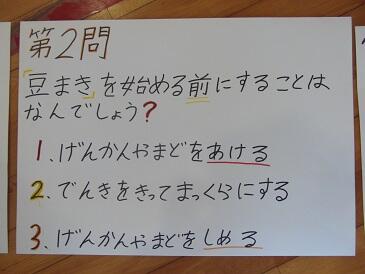 第2問
「豆まき」を始める前にすることは
なんでしょう?
1、げんかんやまどをあける
2、でんきをきってまっくらにする
3、げんかんやまどをしめる